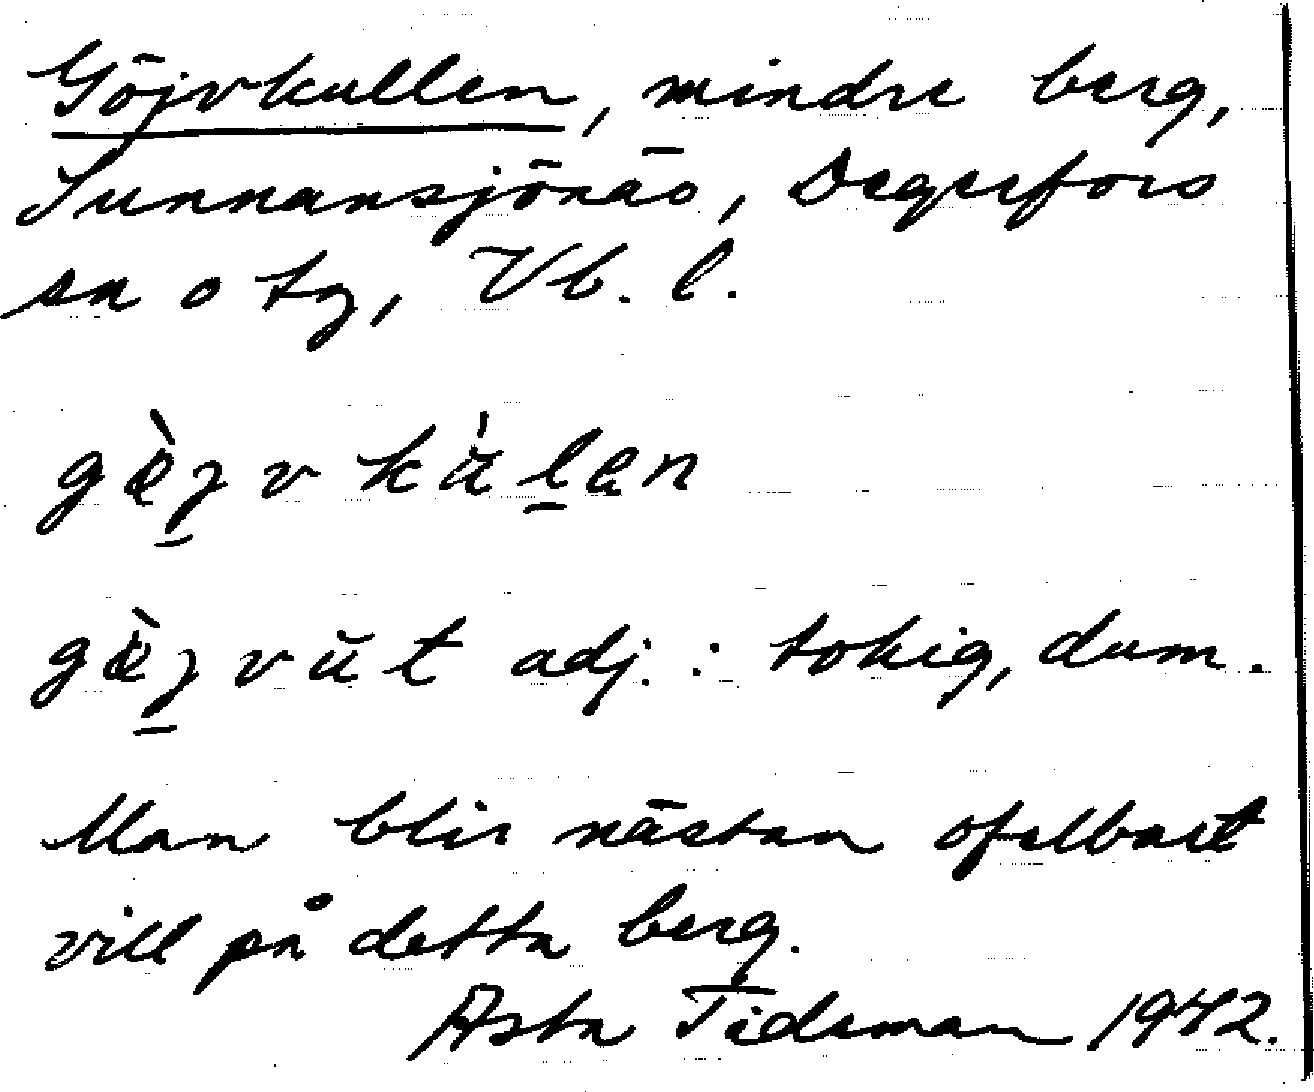 Göjvkullen, mindre berg,
Sunnansjönäs, Degerfors
sn o tg, Vb. l.
adj. : tokig, dum.
Man blir nästan ofelbart
vill på detta berg.
Asta Tideman 1942.